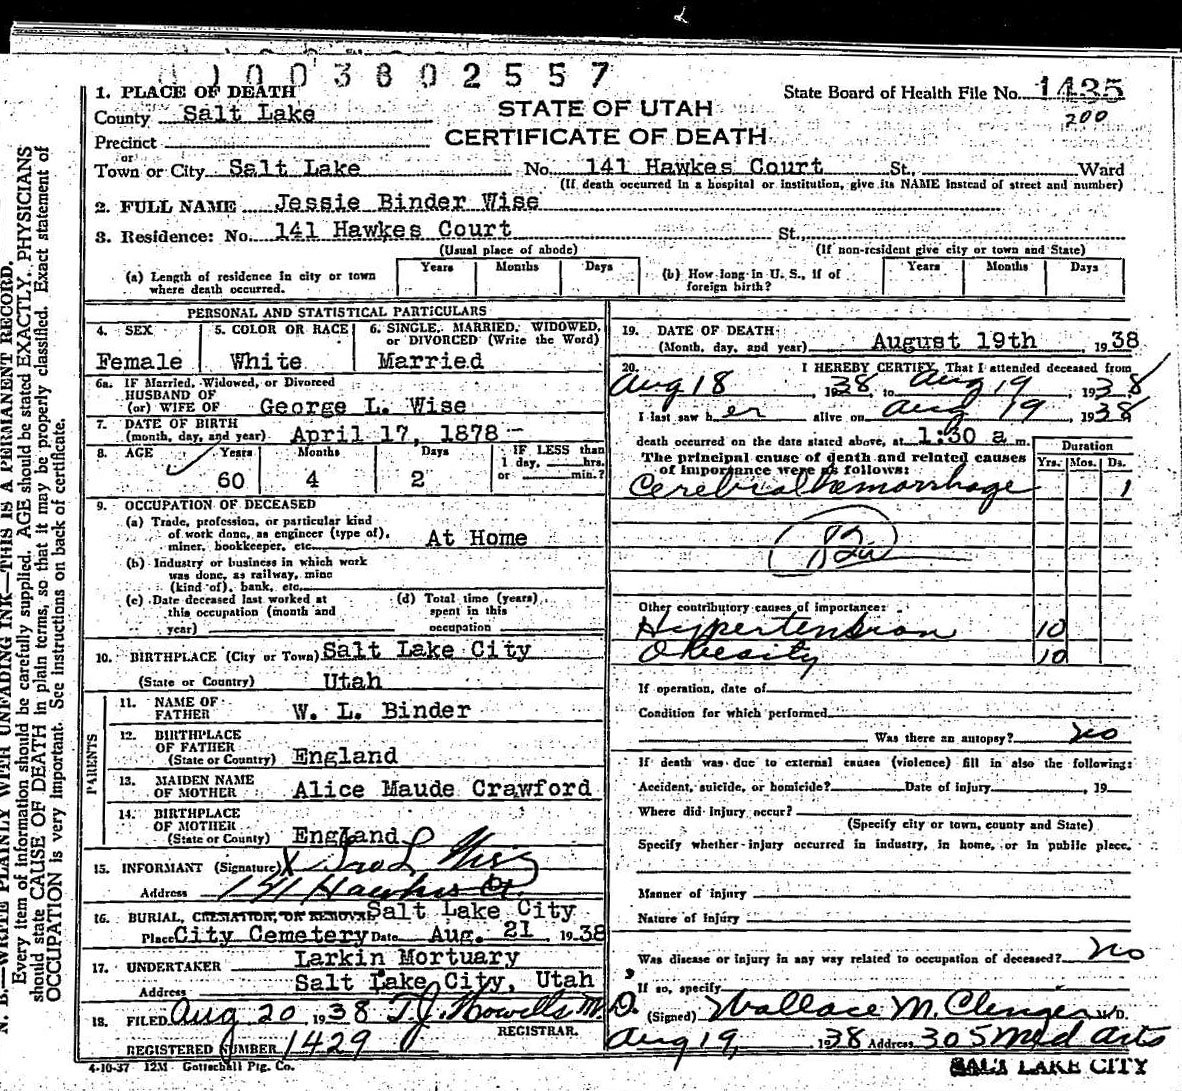 1003802557
1. PLACE OF DEATH
County Salt Lake
STATE OF UTAH
CERTIFICATE OF DEATH
State Board of Health File No. 1435
200
Precinct
or
Town or City Salt Lake No. 141 Hawkes Court St., Ward
(If death occurred in a hospital or institution, give its NAME instead of street and number)
2. FULL NAME Jessie Binder Wise
3. Residence: No. 141 Hawkes Court St.,
(Usual place of abode) (If non-resident give city or town and State)
(a) Length of residence in city or town where death occurred. Years Months Days
(b) How long in U. S., if of foreign birth? Years Months Days
N. B.—WRITE PLAINLY WITH UNFADING INK—THIS IS A PERMANENT RECORD.
Every item of information should be carefully supplied. AGE should be stated EXACTLY. PHYSICIANS
should state CAUSE OF DEATH in plain terms, so that it may be properly classified. Exact statement of
OCCUPATION is very important. See instructions on back of certificate.
PERSONAL AND STATISTICAL PARTICULARS
4. SEX
Female
5. COLOR OR RACE
White
6. SINGLE, MARRIED, WIDOWED,
or DIVORCED (Write the Word)
Married
6a. IF Married, Widowed, or Divorced
HUSBAND OF
(or) WIFE OF George L. Wise
7. DATE OF BIRTH
(month, day, and year) April 17, 1878
8. AGE Years Months Days IF LESS than
1 day, hrs.
or min.?
60 4 2
9. OCCUPATION OF DECEASED
(a) Trade, profession, or particular kind
of work done, as engineer (type of),
miner, bookkeeper, etc. At Home
(b) Industry or business in which work
was done, as railway, mine
(kind of), bank, etc.
(c) Date deceased last worked at
this occupation (month and
year)
(d) Total time (years)
spent in this
occupation
10. BIRTHPLACE (City or Town) Salt Lake City
(State or Country) Utah
PARENTS
11. NAME OF
FATHER W. L. Binder
12. BIRTHPLACE
OF FATHER
(State or Country) England
13. MAIDEN NAME
OF MOTHER Alice Maude Crawford
14. BIRTHPLACE
OF MOTHER
(State or County) England
15. INFORMANT (Signature) X Geo L Wise
Address 141 Hawkes Ct.
16. BURIAL, CREMATION, OR REMOVAL Salt Lake City
Place City Cemetery Date Aug. 21, 1938
17. UNDERTAKER Larkin Mortuary
Address Salt Lake City, Utah
18. FILED Aug 20 1938 T.J. Howells M.D.
REGISTRAR.
REGISTERED NUMBER 1429
4-10-37 12M Gottschall Ptg. Co.
19. DATE OF DEATH
(Month, day, and year) August 19th, 1938
20. I HEREBY CERTIFY, That I attended deceased from
Aug 18, 1938, to Aug 19, 1938
I last saw her alive on Aug 19, 1938
death occurred on the date stated above, at 1:30 a m.
The principal cause of death and related causes
of importance were as follows:
Duration
Yrs. Mos. Ds.
Cerebral hemorrhage 1
Other contributory causes of importance:
Hypertension 10
Obesity 10
If operation, date of
Condition for which performed
Was there an autopsy? no
If death was due to external causes (violence) fill in also the following:
Accident, suicide, or homicide? Date of injury, 19
Where did injury occur?
(Specify city or town, county and State)
Specify whether injury occurred in industry, in home, or in public place.
Manner of injury
Nature of injury
Was disease or injury in any way related to occupation of deceased? no
If so, specify
(Signed) Wallace M. Clinger M.D.
Aug 19, 1938 Address 305 Med Arts
SALT LAKE CITY